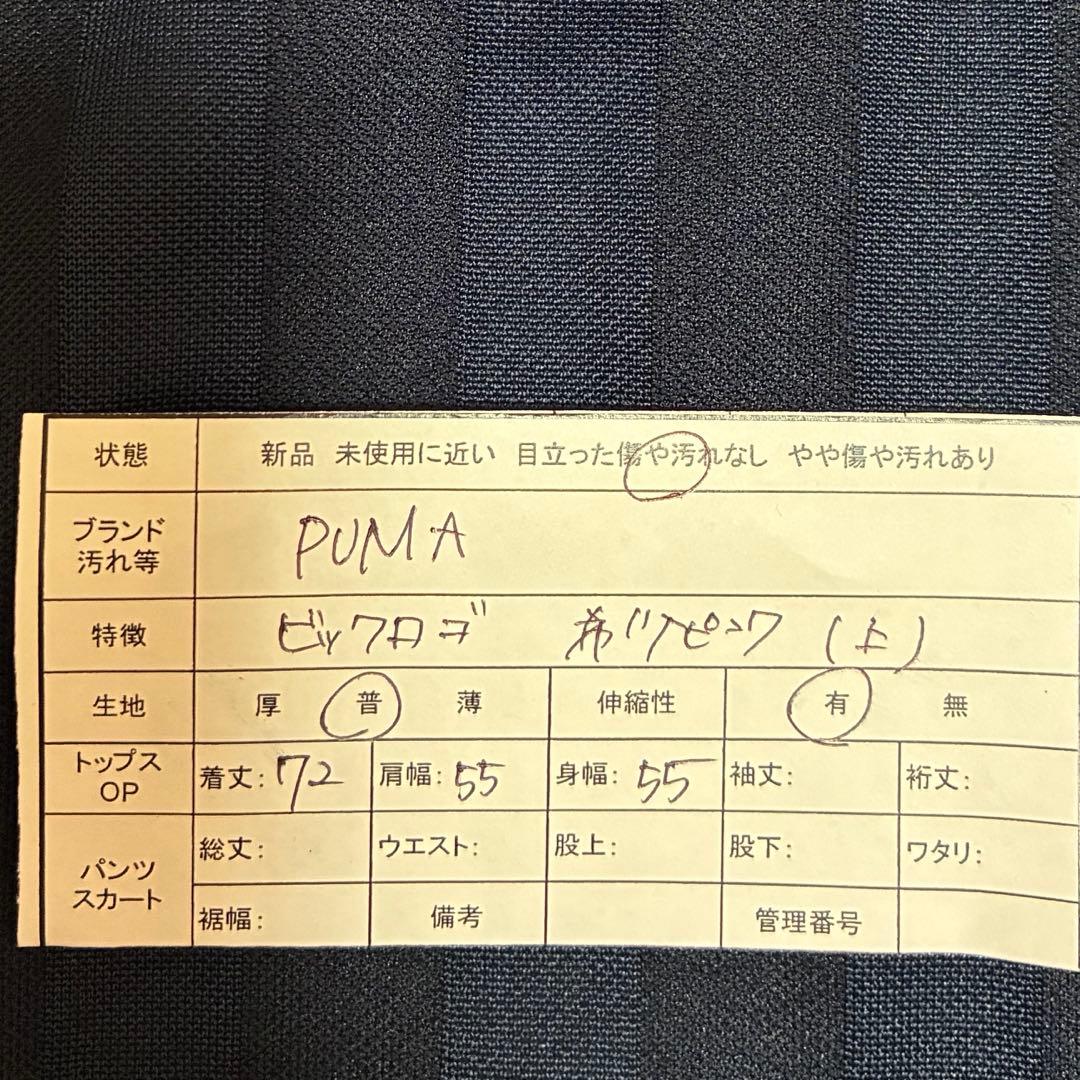 状態 新品 未使用に近い 目立った傷や汚れなし やや傷や汚れあり
ブランド 汚れ等 PUMA
特徴 ビックロゴ (上)
生地 厚 普 薄 伸縮性 有 無
トップス OP 着丈: 72 肩幅: 55 身幅: 55 袖丈: 裄丈:
パンツ スカート 総丈: ウエスト: 股上: 股下: ワタリ:
裾幅: 備考 管理番号